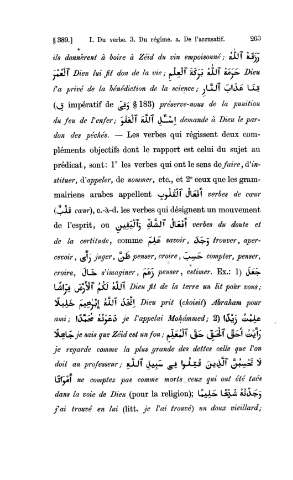 § 389.] I. Du verbe. 3. Du régime. a. De l'accusatif. 263
ils donnèrent à boire à Zéid du vin empoisonné; رَزَقَهُ ٱللّٰهُ
ٱلْعُمْرَ Dieu lui fit don de la vie; حَرَمَهُ ٱللّٰهُ بَرَكَةَ ٱلْعِلْمِ Dieu
l'a privé de la bénédiction de la science; قِنَا عَذَابَ ٱلنَّارِ
(قِ impératif de وَقَى § 183) préserve-nous de la punition
du feu de l'enfer; اِسْأَلِ ٱللّٰهَ ٱلْعَفْوَ demande à Dieu le par-
don des péchés. — Les verbes qui régissent deux com-
pléments objectifs dont le rapport est celui du sujet au
prédicat, sont: 1° les verbes qui ont le sens de faire, d'in-
stituer, d'appeler, de nommer, etc., et 2° ceux que les gram-
mairiens arabes appellent أَفْعَالُ ٱلْقُلُوبِ verbes de cœur
(قَلْبٌ cœur), c.-à-d. les verbes qui désignent un mouvement
de l'esprit, ou أَفْعَالُ ٱلشَّكِّ وَٱلْيَقِينِ verbes du doute et
de la certitude, comme عَلِمَ savoir, وَجَدَ trouver, aper-
cevoir, رَأَى juger, ظَنَّ penser, croire, حَسِبَ compter, penser,
croire, خَالَ s'imaginer, زَعَمَ penser, estimer. Ex.: 1) جَعَلَ
ٱللّٰهُ لَكُمُ ٱلْأَرْضَ فِرَاشًا Dieu fit de la terre un lit pour vous;
اِتَّخَذَ ٱللّٰهُ إِبْرٰهِيمَ خَلِيلًا Dieu prit (choisit) Abraham pour
ami; دَعَوْتُهُ مُحَمَّدًا je l'appelai Mohámmed; 2) عَلِمْتُ زَيْدًا
جَاهِلًا je sais que Zéid est un fou; رَأَيْتُ أَحَقَّ ٱلْحَقِّ حَقَّ ٱلْمُعَلِّمِ
je regarde comme la plus grande des dettes celle que l'on
doit au professeur; لَا تَحْسِبَنَّ ٱلَّذِينَ قُتِلُوا فِي سَبِيلِ ٱللّٰهِ
أَمْوَاتًا ne comptes pas comme morts ceux qui ont été tués
dans la voie de Dieu (pour la religion); وَجَدْتُهُ شَيْخًا حَلِيمًا
j'ai trouvé en lui (litt. je l'ai trouvé) un doux vieillard;